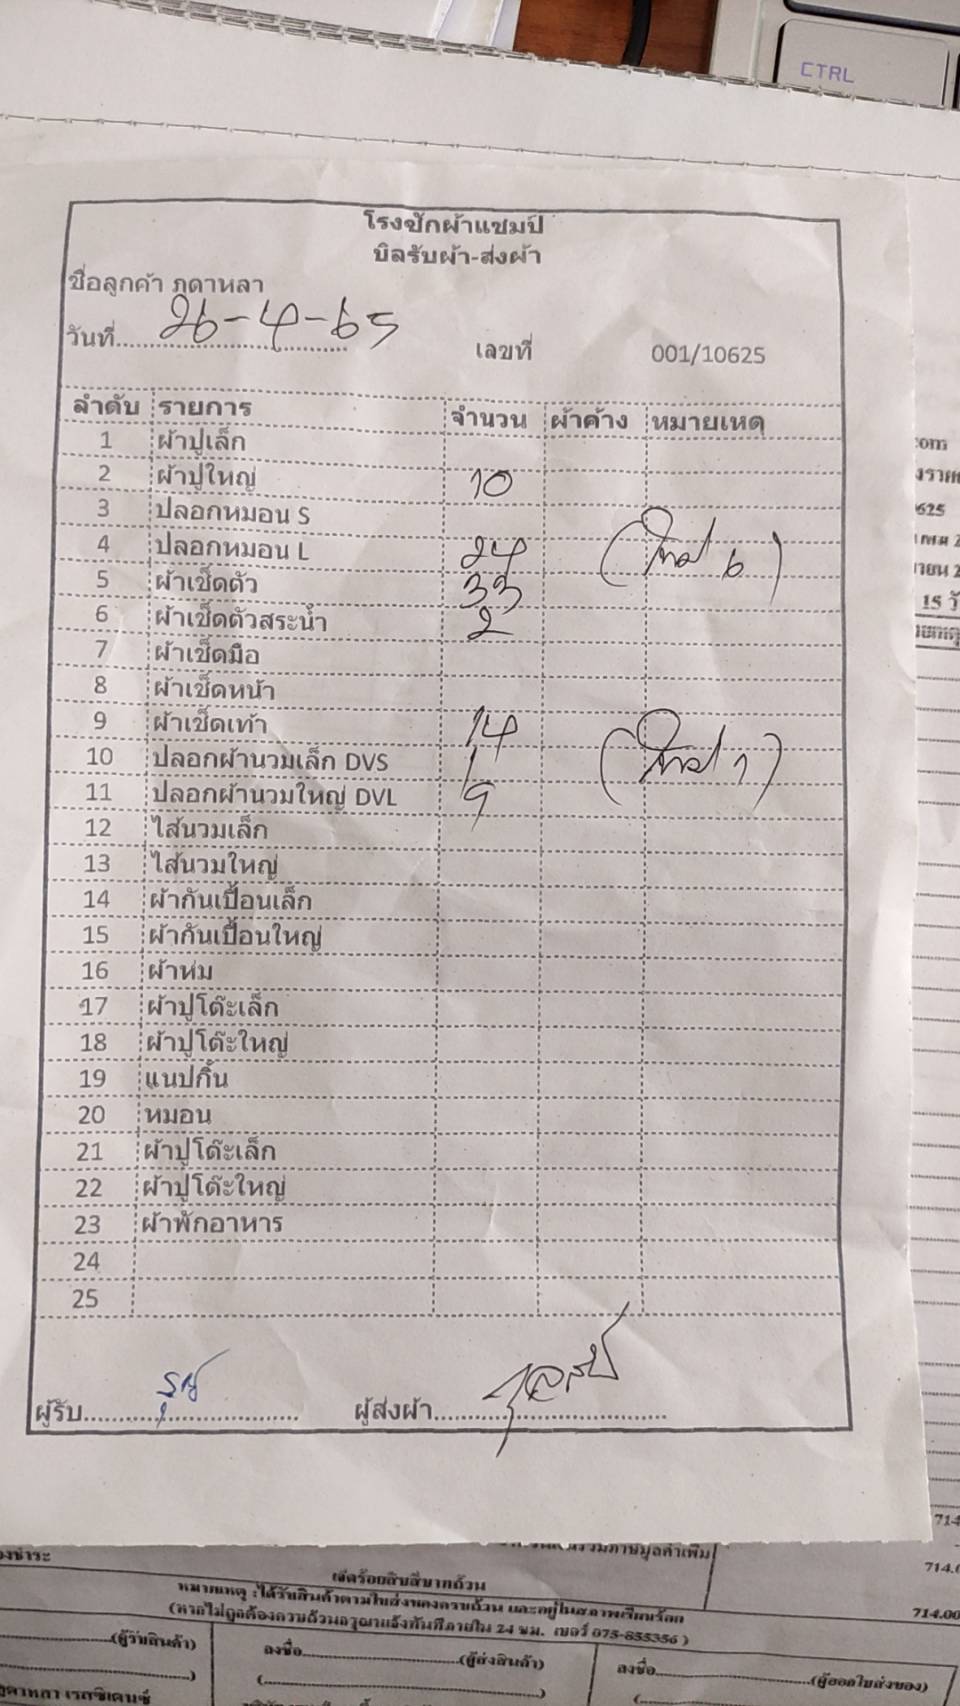 CTRL
โรงซักผ้าแชมป์
บิลรับผ้า-ส่งผ้า
ชื่อลูกค้า ภูดาหลา
วันที่ 26-4-65 เลขที่ 001/10625
ลำดับ รายการ จำนวน ผ้าค้าง หมายเหตุ
1 ผ้าปูเล็ก
2 ผ้าปูใหญ่ 10
3 ปลอกหมอน S
4 ปลอกหมอน L 24 (ใหม่ 6)
5 ผ้าเช็ดตัว 33
6 ผ้าเช็ดตัวสระน้ำ 2
7 ผ้าเช็ดมือ
8 ผ้าเช็ดหน้า
9 ผ้าเช็ดเท้า 14
10 ปลอกผ้านวมเล็ก DVS 1 (ใหม่ 1)
11 ปลอกผ้านวมใหญ่ DVL 9
12 ไส้นวมเล็ก
13 ไส้นวมใหญ่
14 ผ้ากันเปื้อนเล็ก
15 ผ้ากันเปื้อนใหญ่
16 ผ้าห่ม
17 ผ้าปูโต๊ะเล็ก
18 ผ้าปูโต๊ะใหญ่
19 แนปกิ้น
20 หมอน
21 ผ้าปูโต๊ะเล็ก
22 ผ้าปูโต๊ะใหญ่
23 ผ้าพักอาหาร
24
25
ผู้รับ
ผู้ส่งผ้า
com
0625
15 วั
714
714.0
714.00
เจ็ดร้อยสิบสี่บาทถ้วน
หมายเหตุ :ได้รับสินค้าตามใบส่งของครบถ้วน และอยู่ในสภาพเรียบร้อย
(หากไม่ถูกต้องครบถ้วนกรุณาแจ้งทันทีภายใน 24 ชม. เบอร์ 075-855356 )
(ผู้รับสินค้า) ลงชื่อ (ผู้ส่งสินค้า) ลงชื่อ (ผู้ออกใบส่งของ)
ภูดาหลา เรสซิเดนซ์